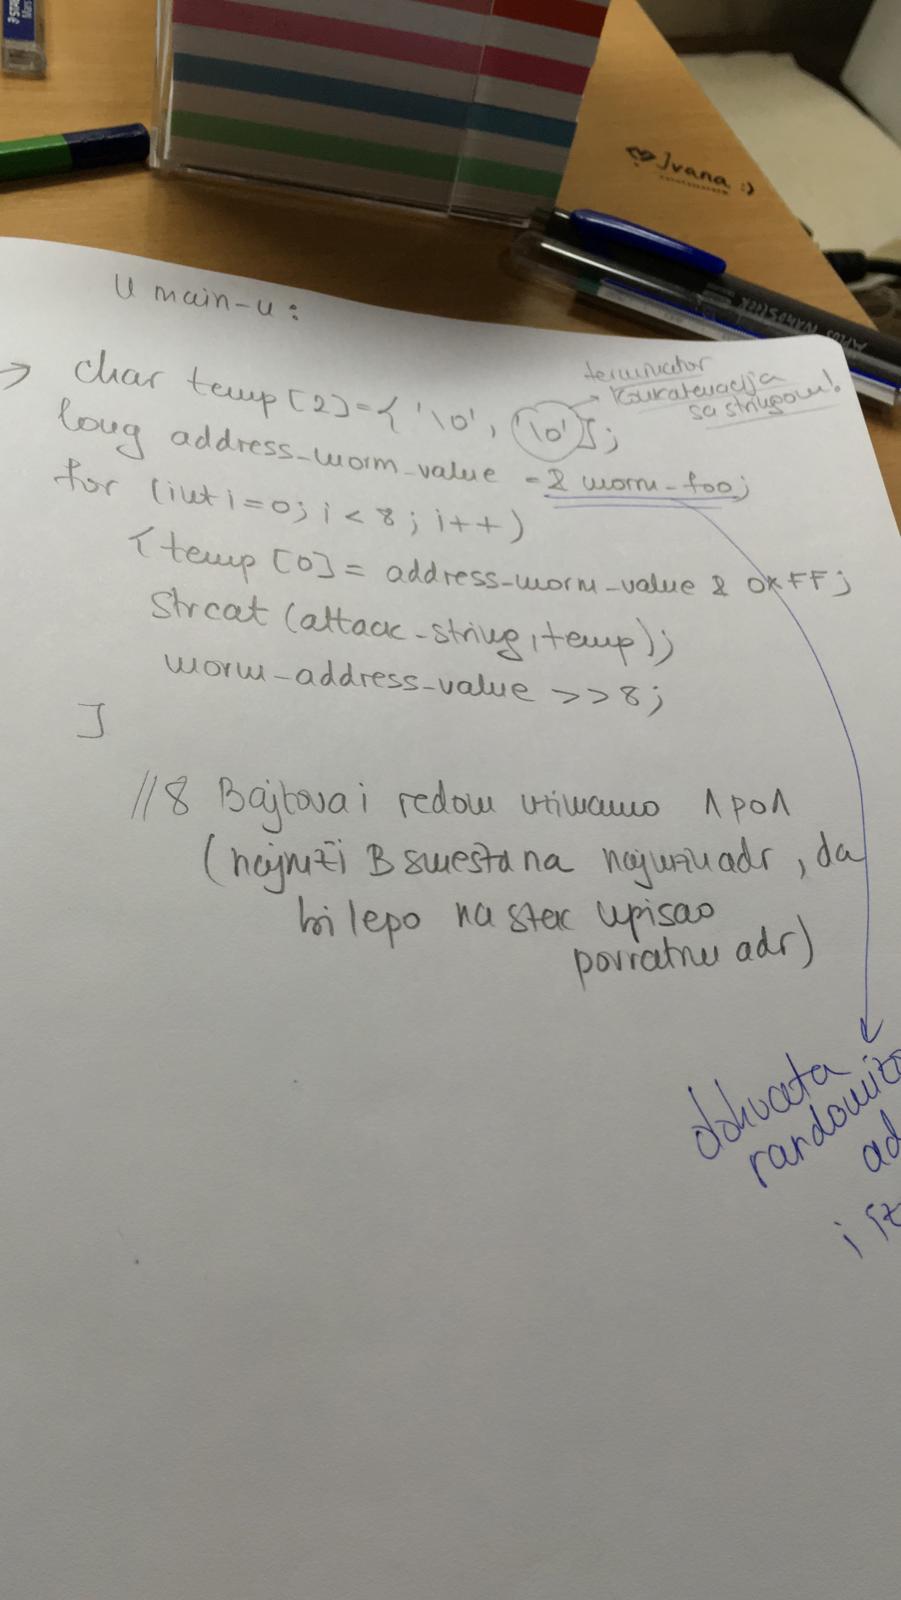 STAE
Mars
Ivana :)
U main-u:
terminator
konkatenacija
sa stringom!
→ char temp [2] = { '\0', '\0' };
long address_worm_value = & worm_foo;
for (int i=0; i < 8; i++)
{ temp [0] = address_worm_value & 0xFF;
strcat (attack_string, temp);
worm_address_value >> 8;
}
//8 Bajtova i redom utiskamo 1 po 1
(najniži B smesta na najnižu adr, da
bi lepo na stek upisao
povratnu adr)
dohvata
i